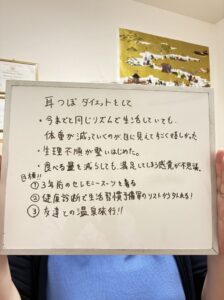 耳つぼダイエットをして
・今までと同じリズムで生活していても、
体重が減っていくのが目に見えてすごく嬉しかった
・生理不順が整いはじめた。
・食べる量を減らしても、満足してしまう感覚が不思議。
目標!!
①3年前のセレモニースーツを着る
②健康診断で生活習慣予備軍のリストから外れる!
③友達との温泉旅行!!